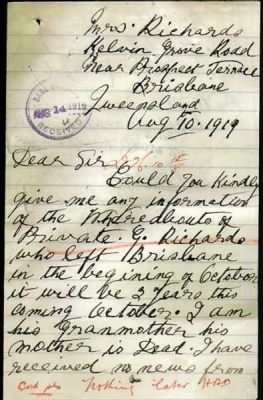 Mrs. Richards
Kelvin Grove Road
Near Prospect Terrace
Brisbane
Queensland
AUG 14 1919
RECEIVED
Aug 10. 1919
Dear Sir
Could You Kindly
give me any information
of the Whareabouts of
Private. G. Richards
who left Brisbane
in the begining of October
it will be 3 Years this
coming October. I am
his Granmother his
mother is Dead. I have
received no news from
Nothing later